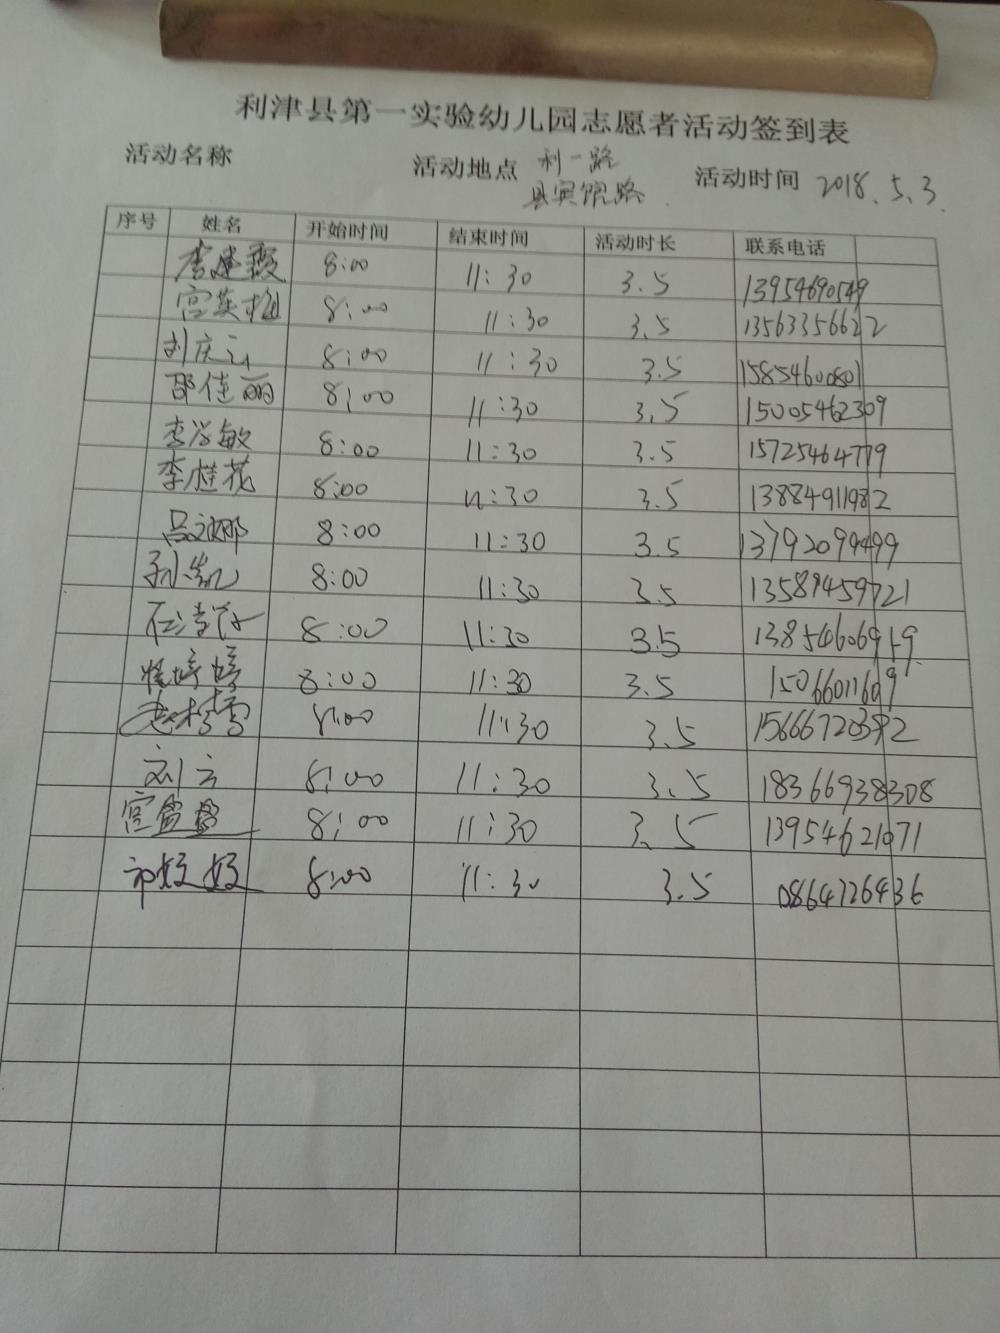 利津县第一实验幼儿园志愿者活动签到表
活动名称 活动地点 利一路 县宾馆路 活动时间 2018.5.3.
序号 姓名 开始时间 结束时间 活动时长 联系电话
李建霞 8:00 11:30 3.5 13954690549
宫英梅 8:00 11:30 3.5 13563356622
刘庆云 8:00 11:30 3.5 15854600801
邵佳丽 8:00 11:30 3.5 15005462309
李海敏 8:00 11:30 3.5 15725464779
李桂花 8:00 11:30 3.5 13884911982
8:00 11:30 3.5 13792099499
孙凯 8:00 11:30 3.5 13589459721
8:00 11:30 3.5 13854606919
婷婷 8:00 11:30 3.5 15066011609
8:00 11:30 3.5 15666720392
刘云 8:00 11:30 3.5 18366938308
宫盈盈 8:00 11:30 3.5 13954621071
8:00 11:30 3.5